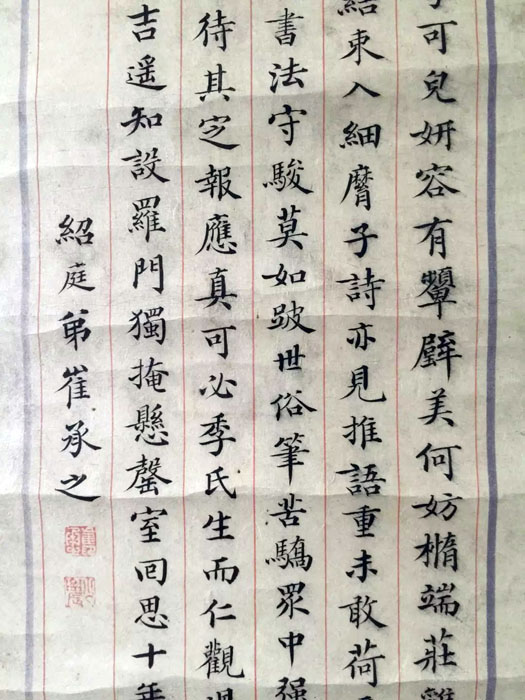 可皃妍容有顰璧美何妨橢端莊
結束入細麿子詩亦見推語重未敢荷
書法守駿莫如跛世俗筆苦驕眾中強
待其定報應真可必季氏生而仁觀
吉遥知設羅門獨掩懸罄室回思十年
紹庭弟崔承之